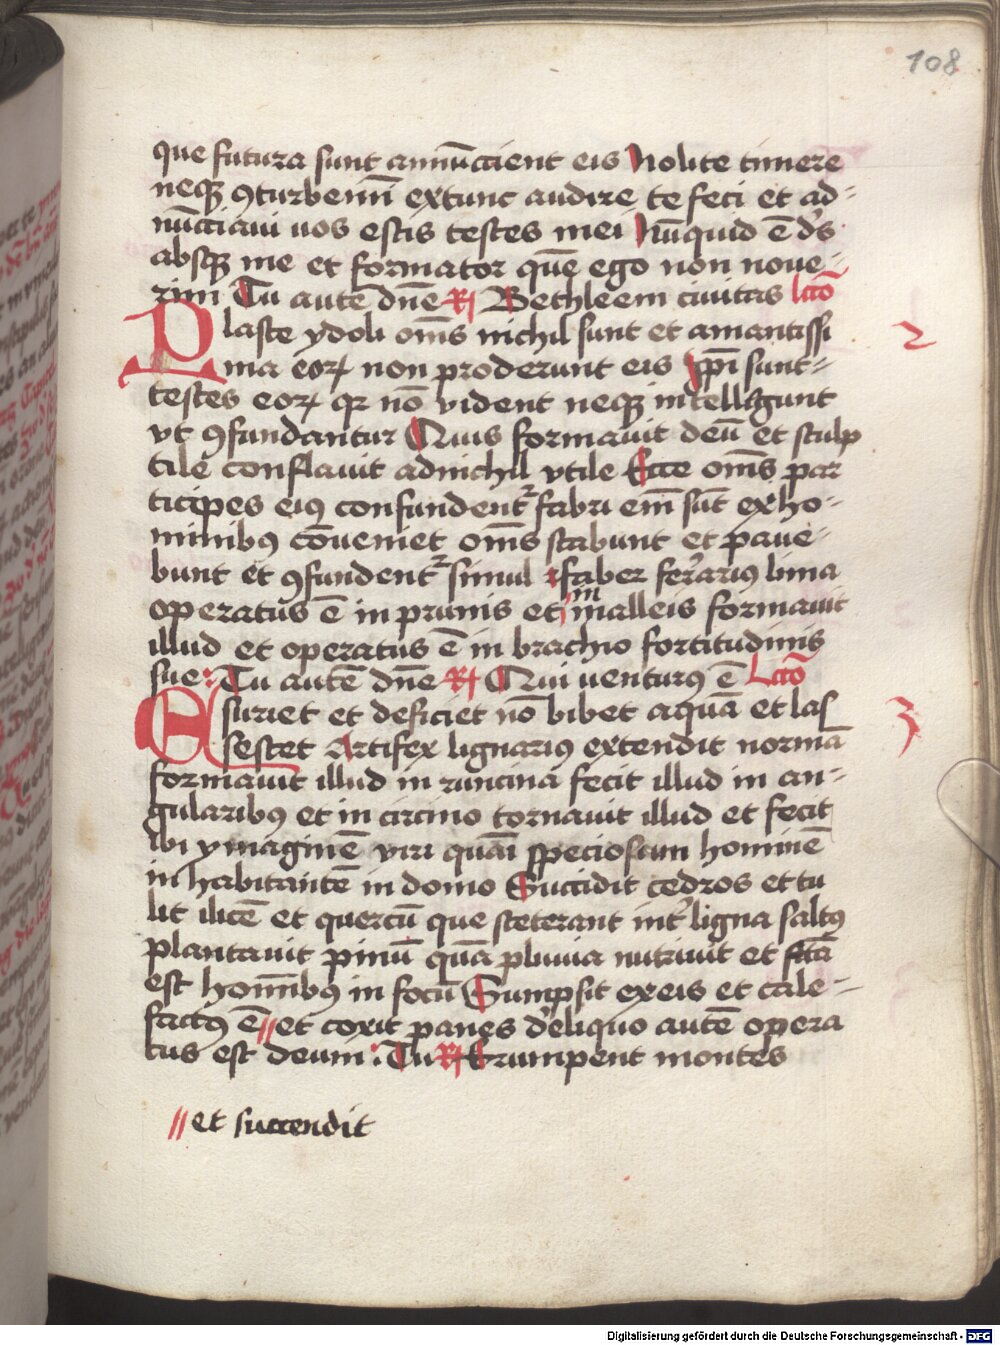 108
que futura sunt annūccient eis Nolite timere
neqꝫ ꝯturbemī extunc audire te feci et ad-
nūcciaui uos estis testes mei Nūquid ē ds̄
absqꝫ me et formator quē ego non noue-
rim Tu autē dn̄e ℟ Bethleem ciuitas lcō
Plaste ydoli om̄s nichil sunt et amantissi 2
ma eoꝝ non proderunt eis ip̄i sunt-
testes eoꝝ qr nō vident neqꝫ intelligunt
vt ꝯfundantur Quis formauit deū et sculp
tile conflauit adnichil vtile Ecce om̄s par
ticipes eiꝰ confundent᷑ fabri em̄ sūt ex ho-
minibꝰ cōueniet om̄s stabunt et paue-
bunt et ꝯfundent᷑ simul faber ferrariꝰ lima
operatus ē in prunis et in malleis formauit
illud et operatus ē in brachio fortitudinis
sue: Tu autē dn̄e ℟ Qui venturꝰ ē Lcō
Esuriet et deficiet nō bibet aquā et las 3
sescet Artifex lignariꝰ extendit normā
formauit illud in runcina fecit illud in an-
gularibꝰ et in circino tornauit illud et fecit
ibi ymaginē viri quāi speciosum hominē
in habitantē in domo Succidit cedros et tu
lit ilicē et quercū que steterant int᷑ ligna saltꝰ
plantauit pinū quā pluuia nutriuit et fc̄ā
est hom̄ibꝰ in focū Sumpsit ex eis et cale-
factꝰ ē // et coxit panes de liquo autē opera
tus est deum: Tu ℟ Erumpent montes
// et succendit
Digitalisierung gefördert durch die Deutsche Forschungsgemeinschaft - DFG